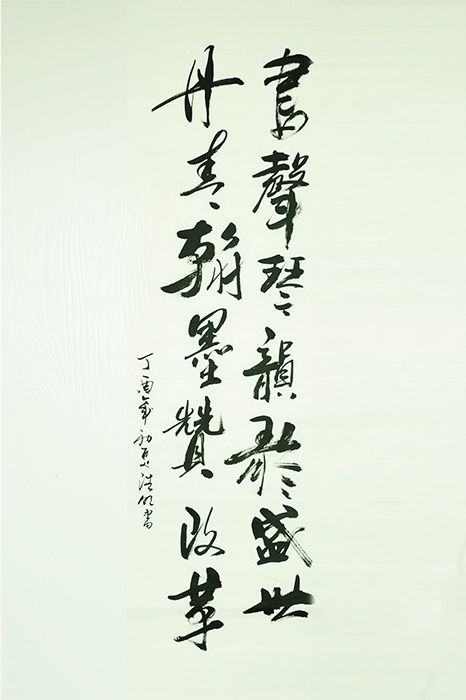 書聲琴韻聚盛世
丹青翰墨贊改革
丁酉年初夏浩書